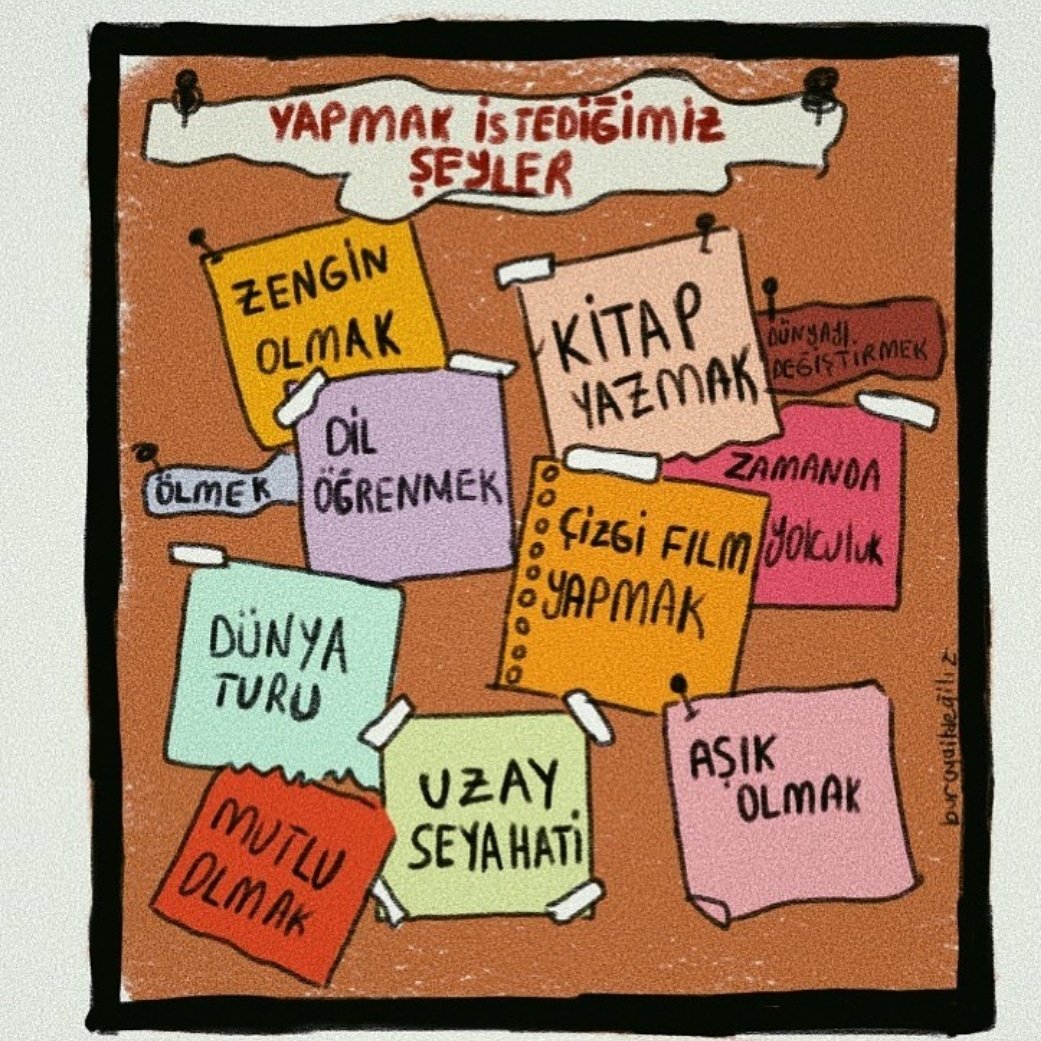 YAPMAK İSTEDİĞİMİZ
ŞEYLER
ZENGİN
OLMAK
KİTAP
YAZMAK
DÜNYAYI
DEĞİŞTİRMEK
DİL
ÖĞRENMEK
ÖLMEK
ZAMANDA
yolculuk
ÇİZGİ FILM
YAPMAK
DÜNYA
TURU
UZAY
SEYAHATİ
AŞIK
OLMAK
MUTLU
OLMAK